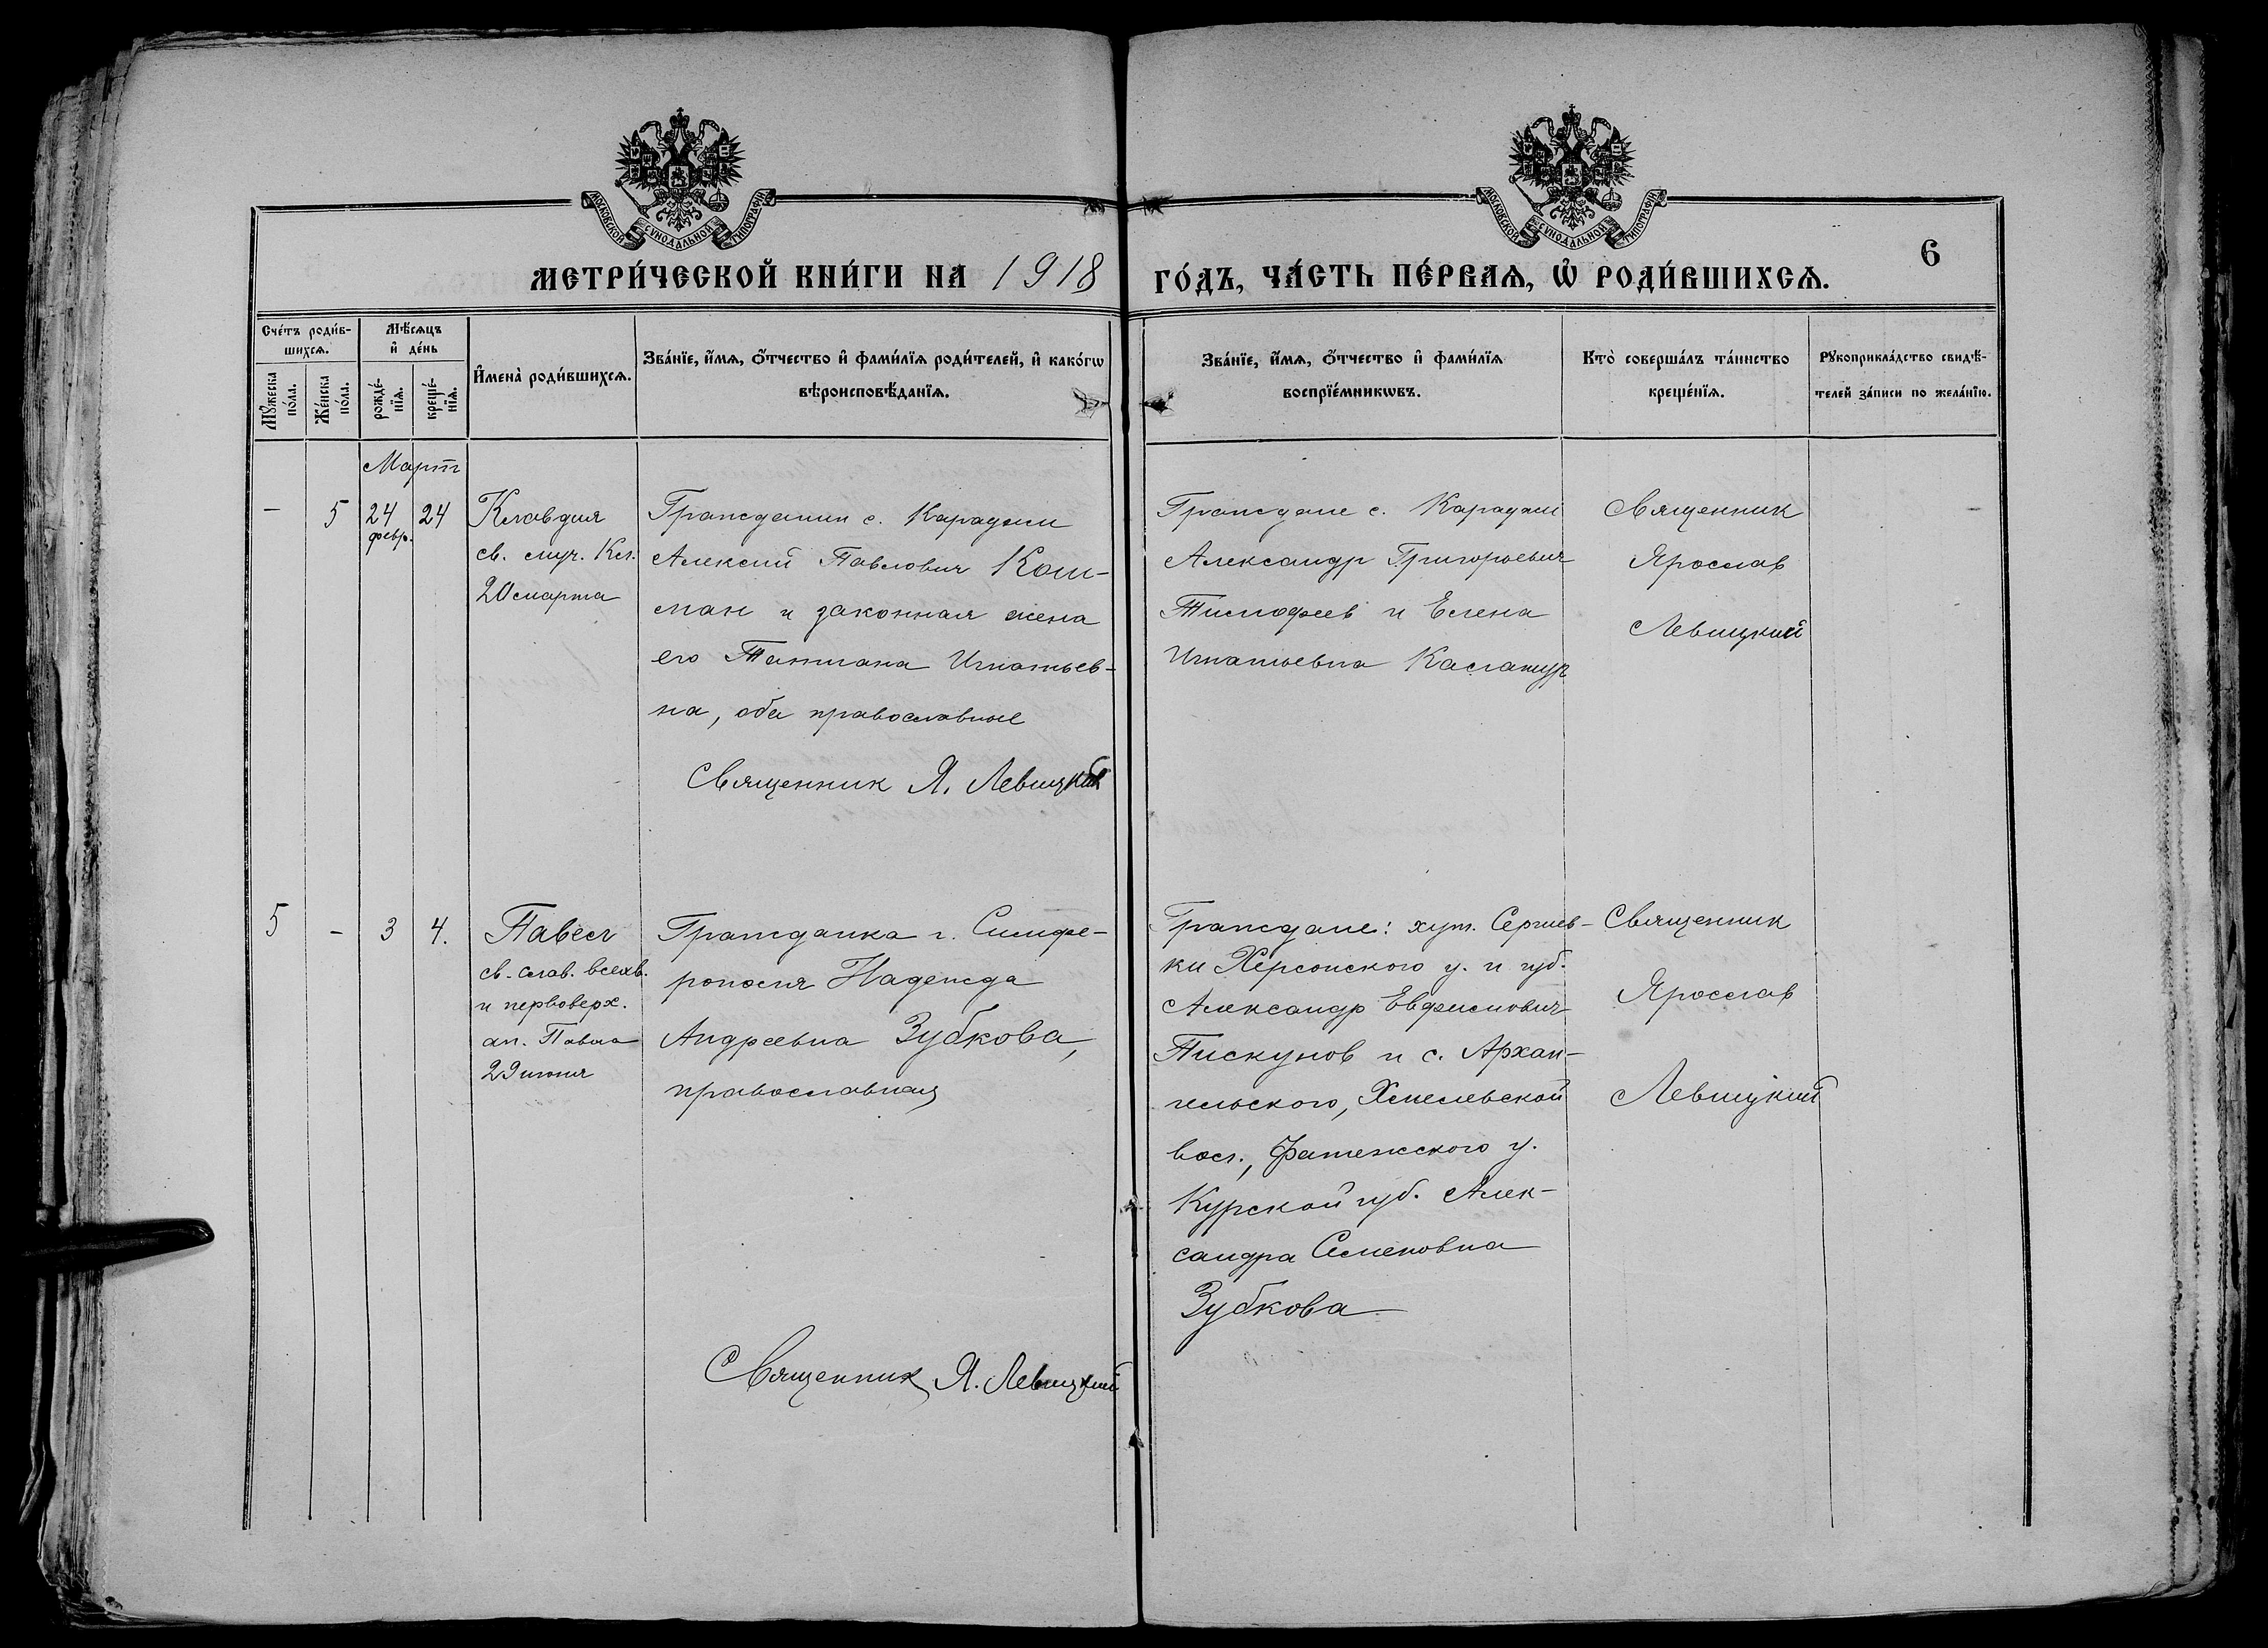 МОСКОВСКОЙ СУНОДАЛЬНОЙ ТИПОГРАФІИ
МОСКОВСКОЙ СУНОДАЛЬНОЙ ТИПОГРАФІИ
6
МЕТРИ́ЧЕСКОЙ КНИ́ГИ НА 1918 ГО́ДЪ, ЧА́СТЬ ПЕ́РВАѦ, Ѽ РОДИ́ВШИХСѦ.
Сче́тъ роди́в-
шихсѧ.
Мѣ́сѧцъ
и҆ де́нь
Мꙋ́жеска
по́ла.
Же́нска
по́ла.
рожде́-
нїѧ.
креще́-
нїѧ.
И҆мена̀ роди́вшихсѧ.
Зва́нїе, и҆́мѧ, ѻ҆́тчество и҆ фами́лїѧ роди́телей, и҆ како́гѡ
вѣроисповѣ́данїѧ.
Зва́нїе, и҆́мѧ, ѻ҆́тчество и҆ фами́лїѧ
воспрїе́мникѡвъ.
Кто̀ соверша́лъ та́инство
креще́нїѧ.
Рꙋкоприкла́дство свидѣ́-
телей за́писи по жела́нїю.
Март
–
5
24
февр.
24
Клавдия
св. муч. Кл.
20 марта
Гражданин с. Караджи
Алексий Павлович Кош-
ман и законная жена
его Татиана Игнатьев-
на, оба православные
Священник Я. Левицкий
Граждане с. Караджи
Александр Григорьевич
Тимофеев и Елена
Игнатьевна Каспажур
Священник
Ярослав
Левицкий
5
–
3
4.
Павел
св. слав. всехв.
и первоверх.
ап. Павла
29 июня
Гражданка г. Симфе-
рополя Надежда
Андреевна Зубкова,
православная
Священник Я. Левицкий
Граждане: хут. Сергиев-
ки Херсонского у. и губ.
Александр Евфимович
Пискунов и с. Архан-
гельского, Хмелевской
вол., Фатежского у.
Курской губ. Алек-
сандра Семеновна
Зубкова
Священник
Ярослав
Левицкий